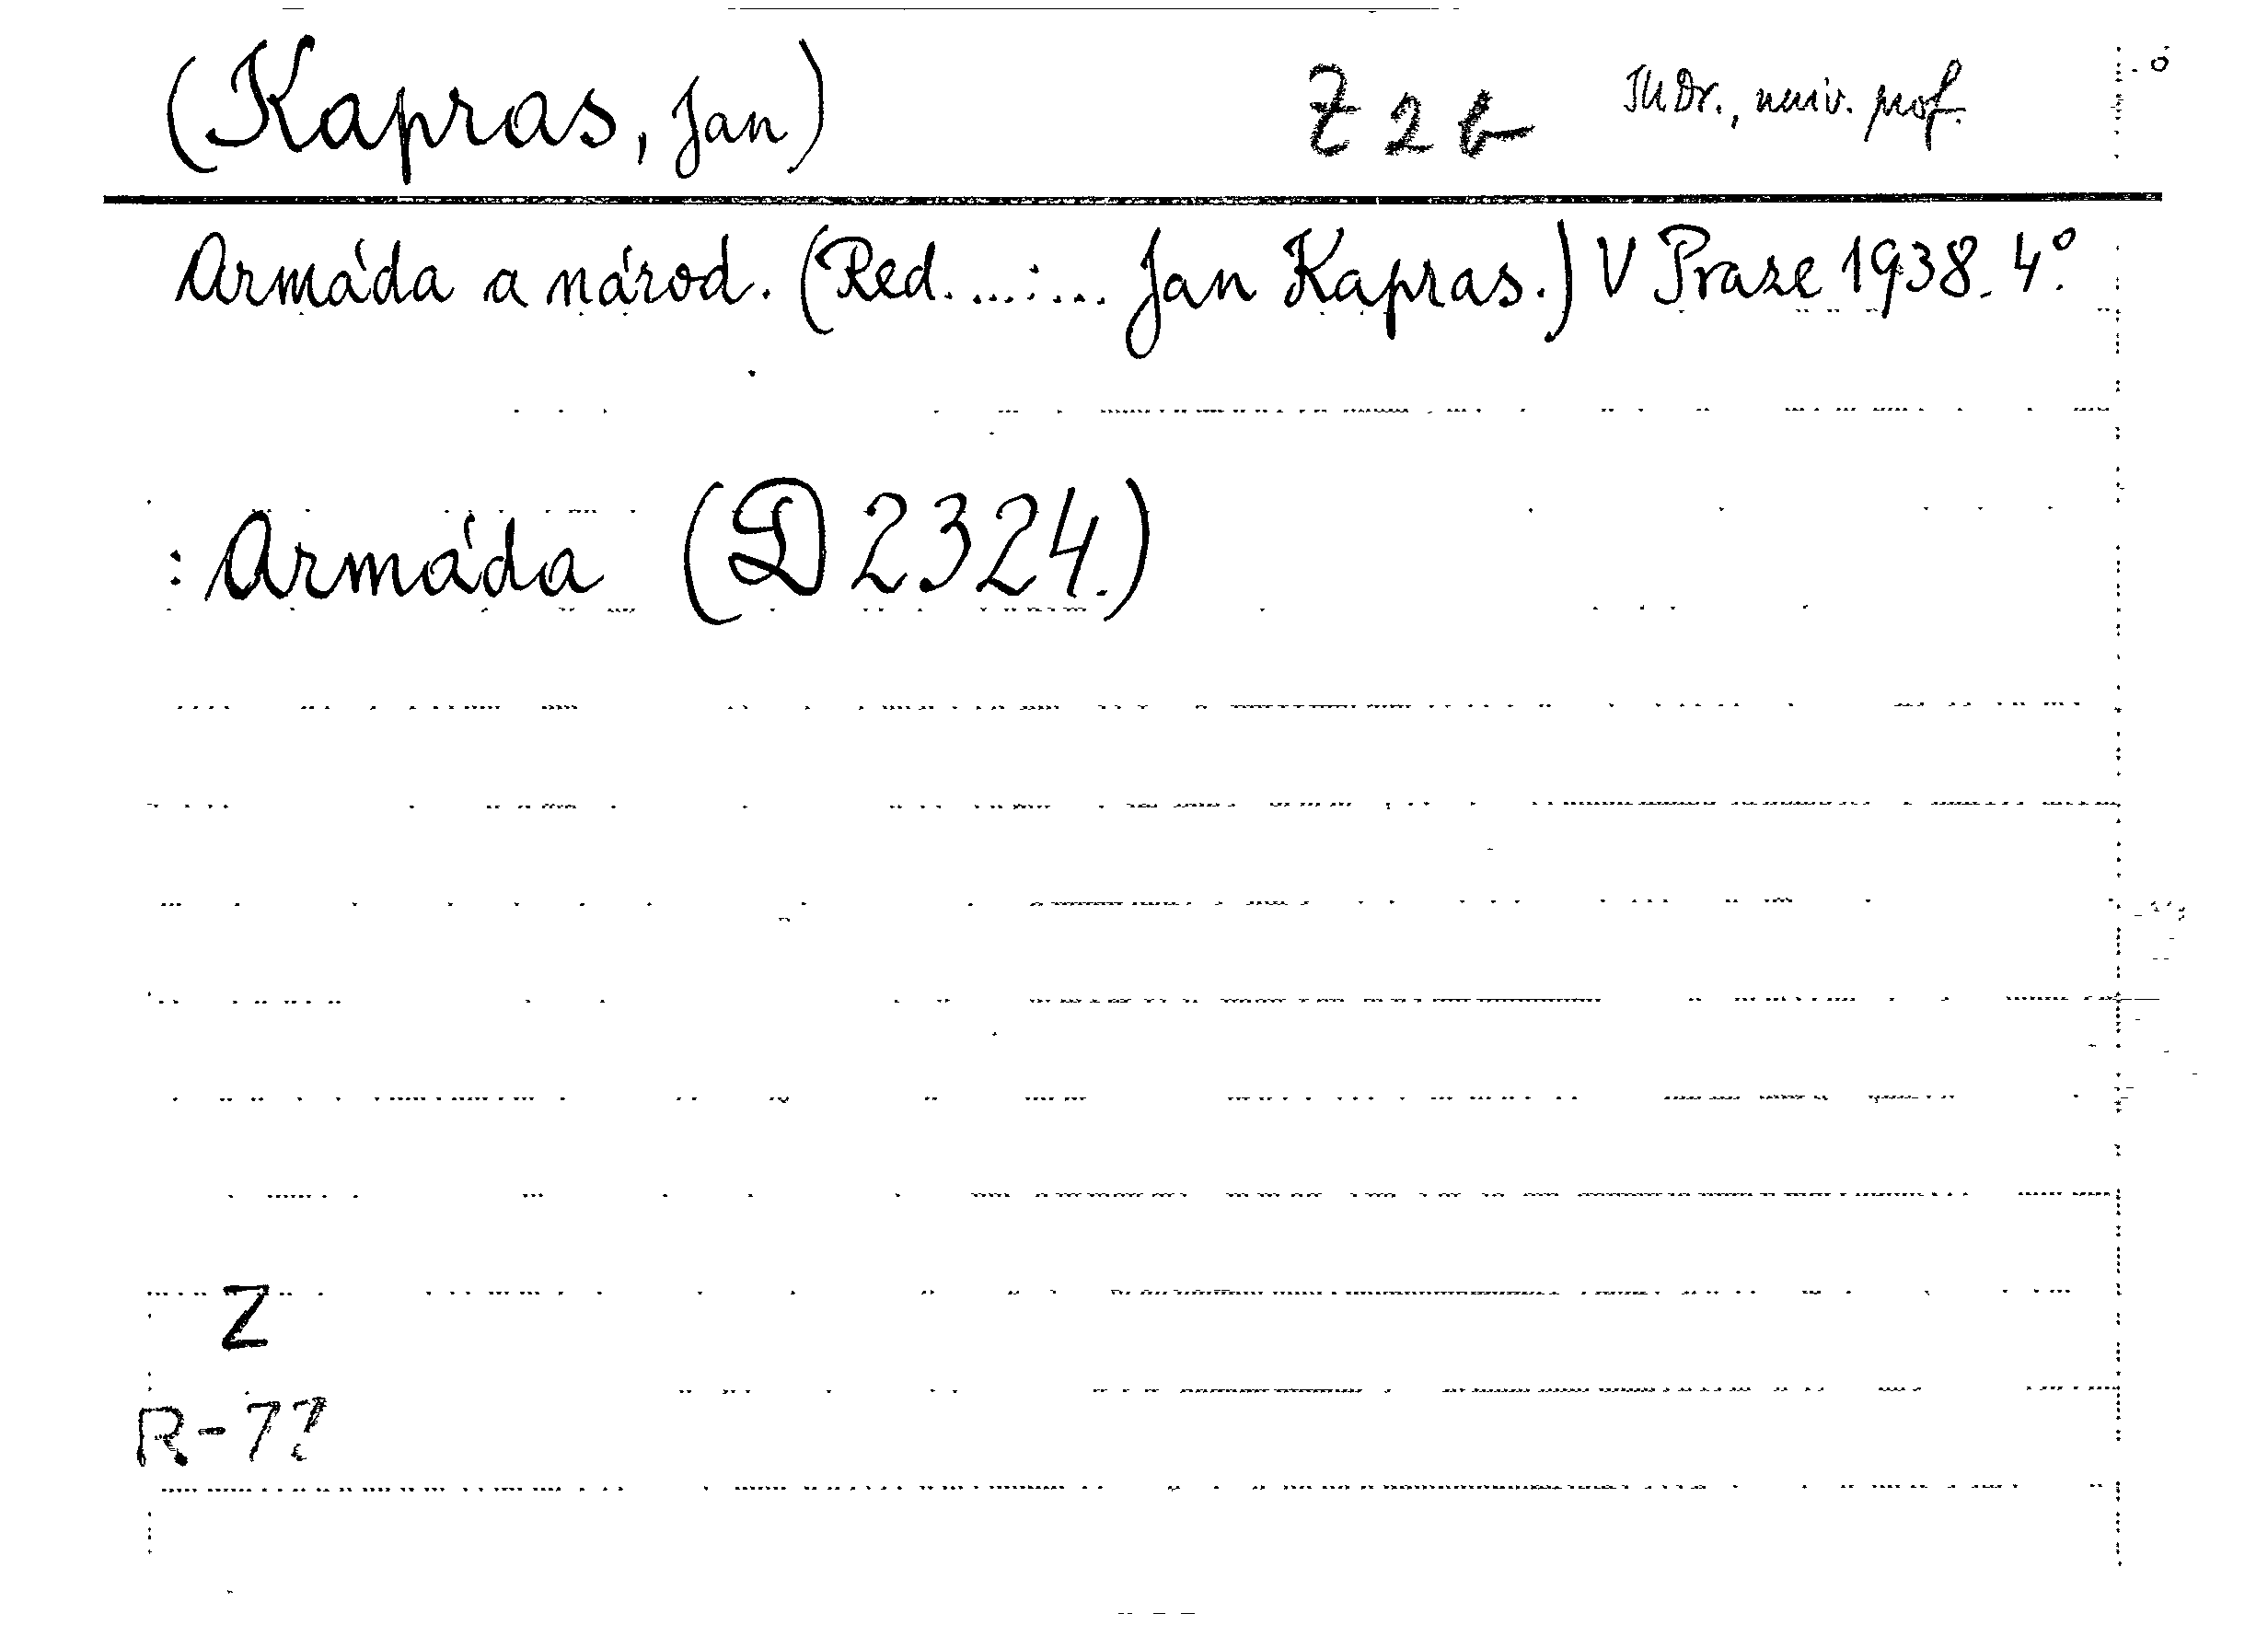 (Kapras, Jan) Z 2 b JUDr., univ. prof.
Armáda a národ. (Red. ...:... Jan Kapras.) V Praze 1938. 4°.
: Armáda (D 2324.)
Z
R-77